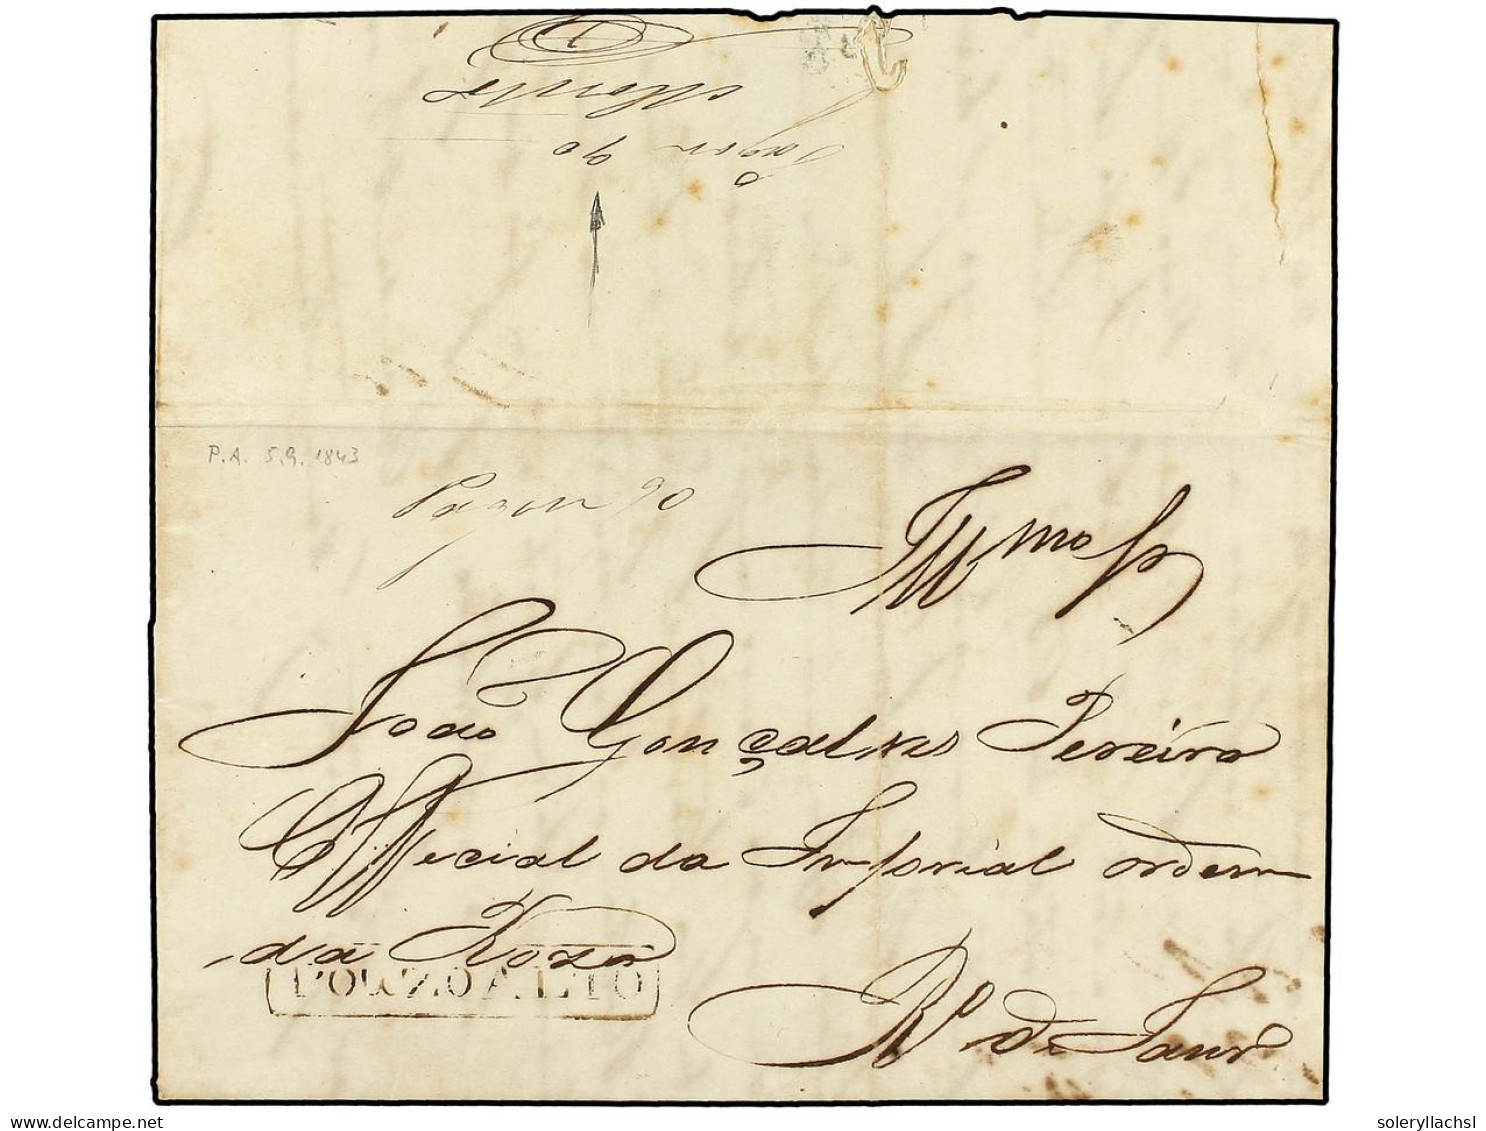 Pagou 90
P.A. 5.9.1843
Pagou 90
Illmo Sr
João Gonçalves Pereira
Official da Imperial ordem
da Roza
POUZO ALTO
Ro de Janro
soleryllachsl